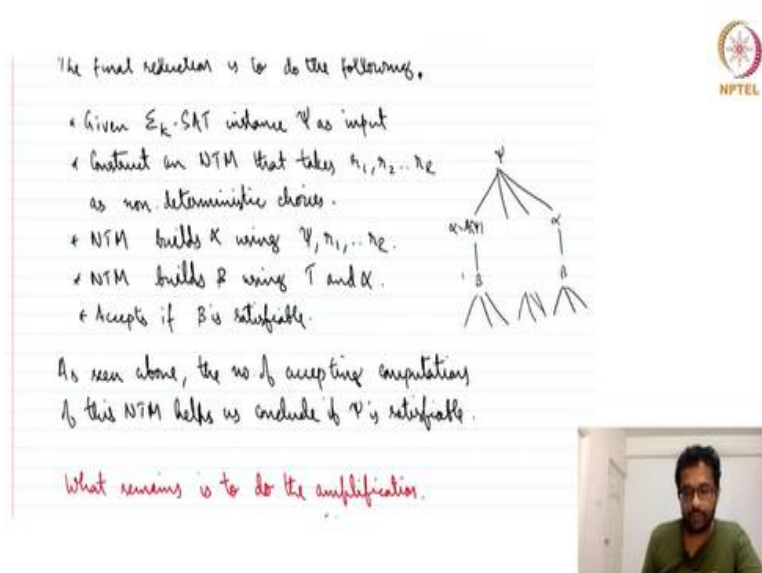 The final reduction is to do the following.
NPTEL
* Given Σk-SAT instance Ψ as input
* Construct an NTM that takes r1, r2 .. rR
as non deterministic choices.
* NTM builds α using Ψ, r1, .. rR.
* NTM builds β using T and α.
* Accepts if β is satisfiable.
Ψ
α=A(Ψ) α
β β
As seen above, the no of accepting computations
of this NTM helps us conclude if Ψ is satisfiable.
What remains is to do the amplification.